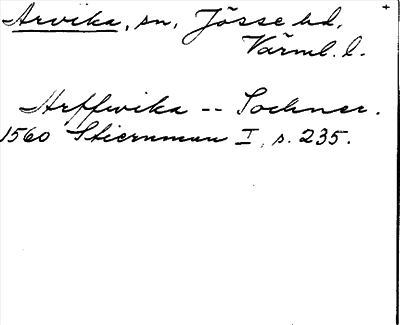 Arvika, sn, Jösse hd.
Värml. l.
Arffwika -- Sochner.
1560 Stiernman I, s. 235.